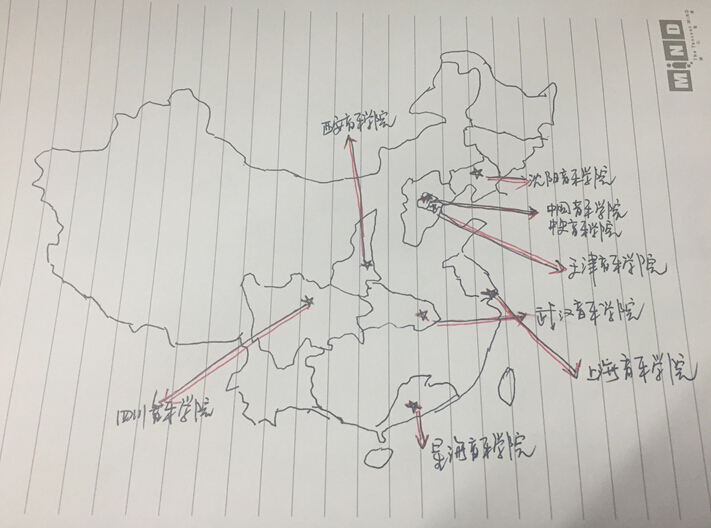 MiND
西安音乐学院
沈阳音乐学院
中国音乐学院
中央音乐学院
天津音乐学院
武汉音乐学院
上海音乐学院
四川音乐学院
星海音乐学院